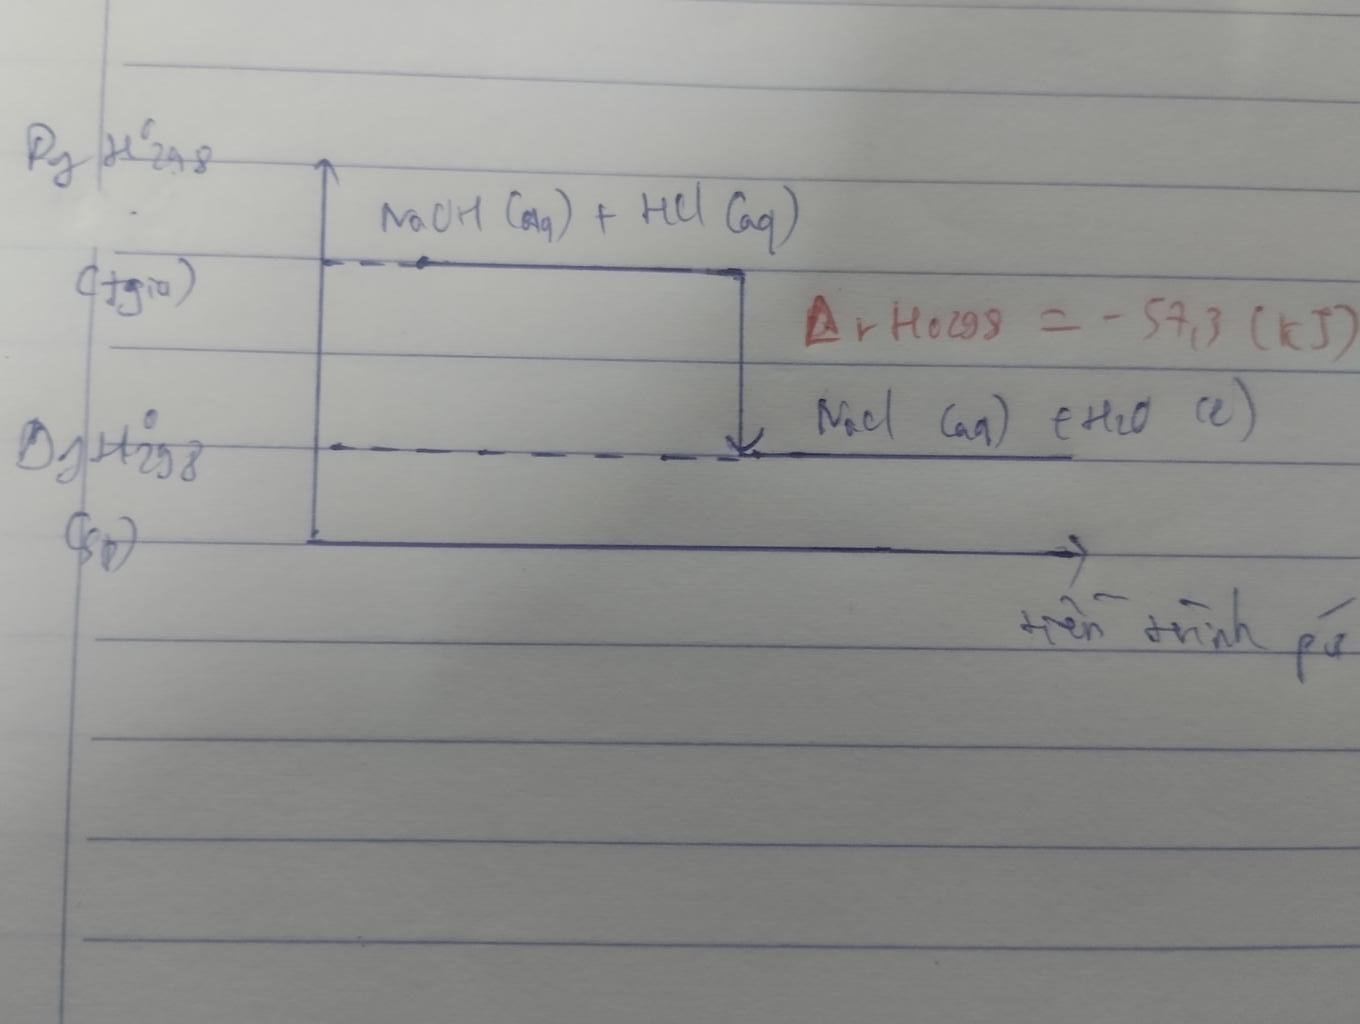 ΔfH°298
NaOH (aq) + HCl (aq)
(tgia)
ΔrH0298 = - 57,3 (kJ)
NaCl (aq) + H2O (l)
ΔfH°298
(sp)
tiến trình pứ